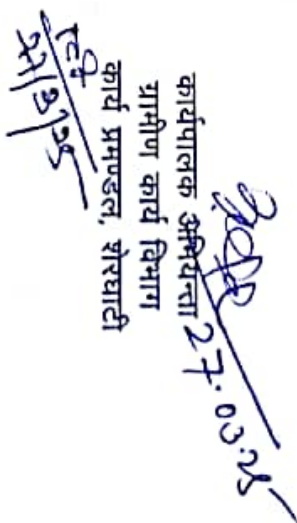 27.03.25
कार्यपालक अभियन्ता
ग्रामीण कार्य विभाग
कार्य प्रमण्डल, शेरघाटी
27/3/25